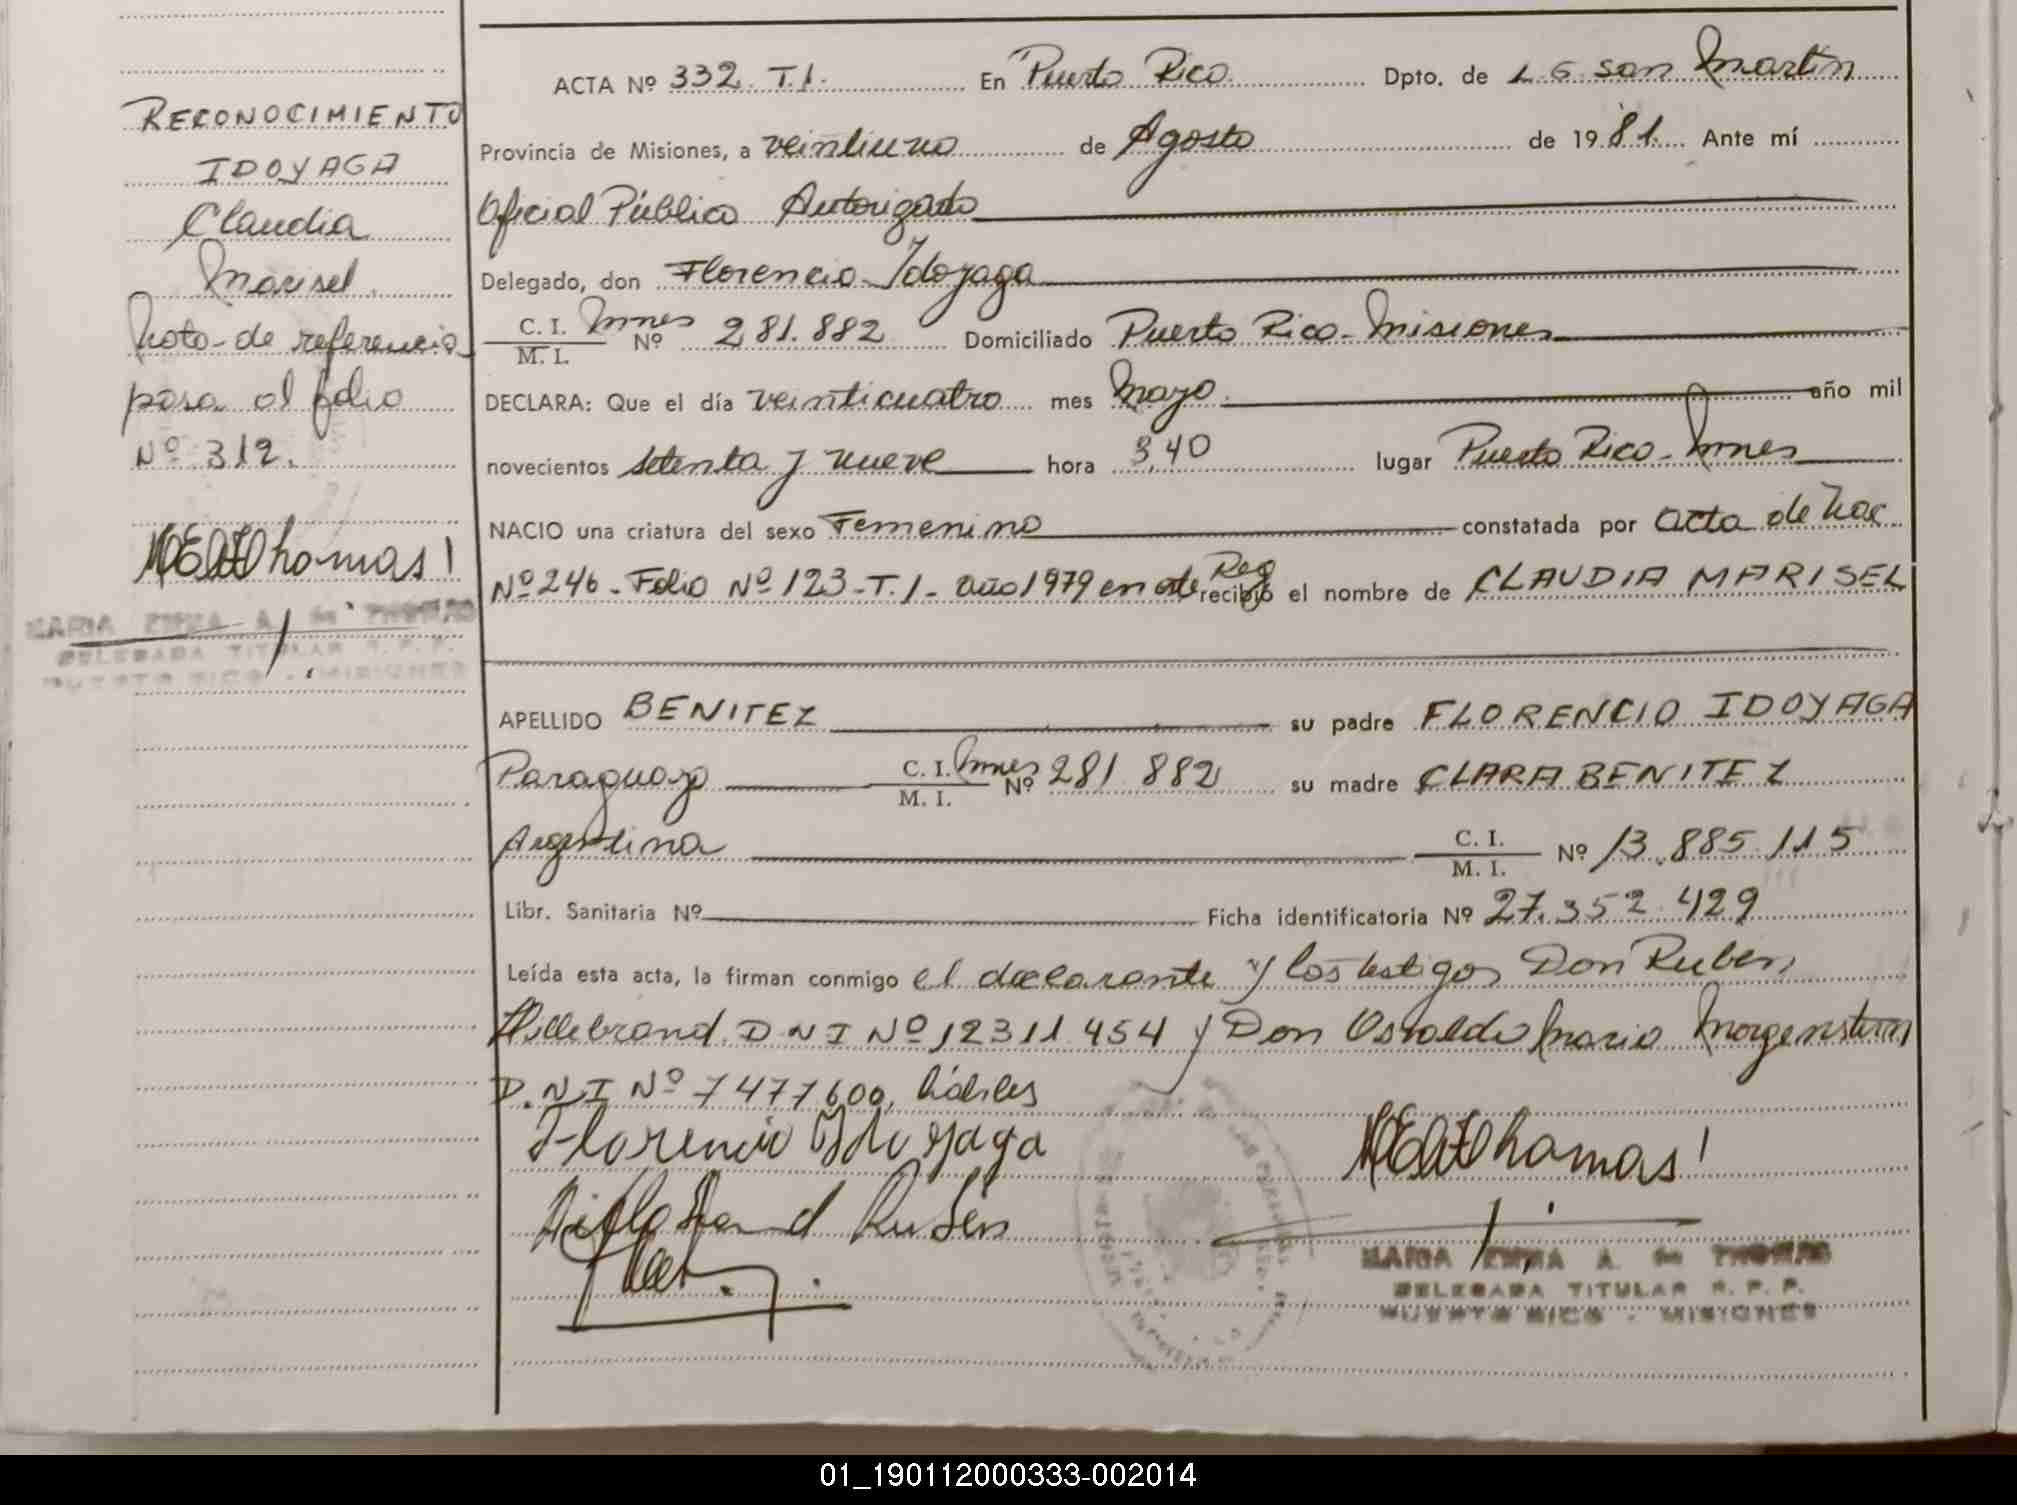 RECONOCIMIENTO
IDOYAGA
Claudia
Marisel.
Nota-de referencia
pasa al folio
Nº 312.
MARIA EMMA A. de THOMAS
DELEGADA TITULAR R. P. P.
PUERTO RICO - MISIONES
ACTA Nº 332. T.1. En Puerto Rico. Dpto. de L. G. San Martín
Provincia de Misiones, a veintiuno de Agosto de 1981. Ante mí
Oficial Público Autorizado
Delegado, don Florencio Idoyaga
C. I. Mnes Nº 281.882 Domiciliado Puerto Rico - Misiones
M. I.
DECLARA: Que el día veinticuatro mes Mayo. año mil
novecientos setenta y nueve hora 3,40 lugar Puerto Rico - Mnes
NACIO una criatura del sexo Femenino constatada por acta de Nac
Nº 246 - Folio Nº 123 - T.1 - año 1979 en este Reg recibió el nombre de CLAUDIA MARISEL
APELLIDO BENITEZ su padre FLORENCIO IDOYAGA
Paraguayo C. I. Mnes Nº 281 882 su madre CLARA BENITEZ
M. I.
Argentina C. I. Nº 13.885.115
M. I.
Libr. Sanitaria Nº Ficha identificatoria Nº 27.352.429
Leída esta acta, la firman conmigo el declarante y los testigos Don Ruben
Hillebrand. D N I Nº 12311 454 y Don Osvaldo Mario Morgenstern
D.N.I Nº 7477600, hábiles
Florencio Idoyaga
Hillebrand Rubén
MARIA EMMA A. de THOMAS
DELEGADA TITULAR R. P. P.
PUERTO RICO - MISIONES
01_190112000333-002014